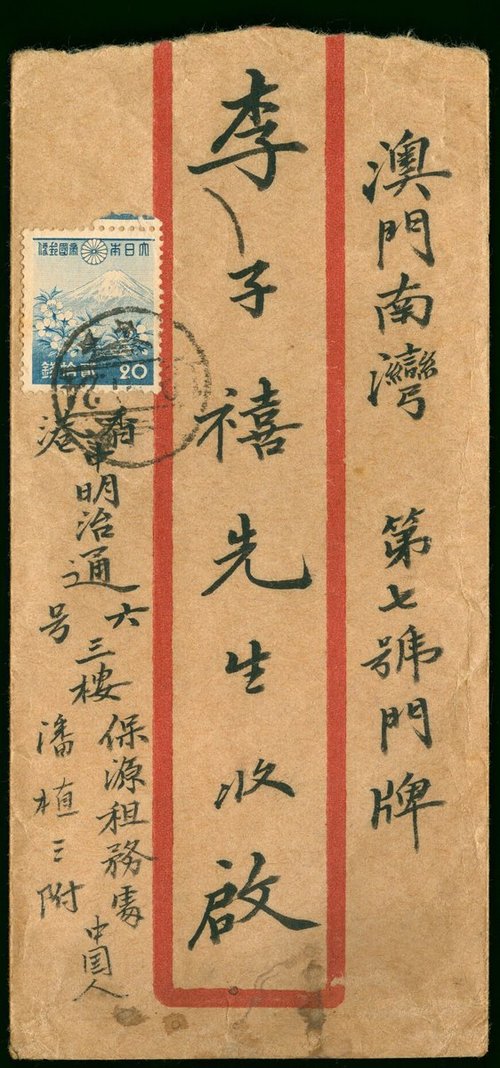 澳門南灣 第七號門牌
李子禧先生收啟
香港
中明治通
六号
三樓
保源租務處
潘植三附
中国人
大日本帝國郵便
貳拾錢
20